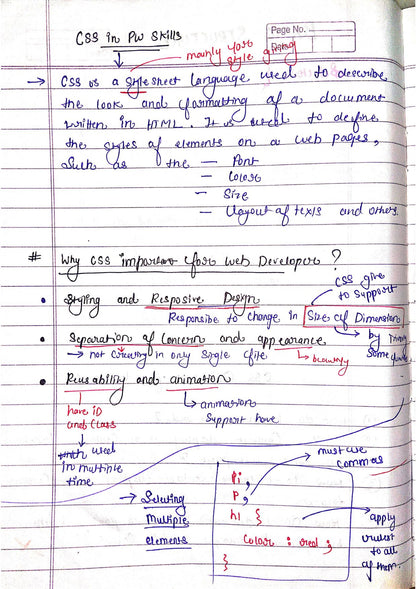 Page No.
CSS in PW Skills
Date
mainly for style giving
→ CSS is a Stylesheet Language used to describe
the look and formatting of a document
written in HTML. It is used to define
the styles of elements on a web pages,
Such as the — Font
— Color
— Size
— Layout of texts and others.
# Why CSS important for web Developer ?
CSS give
to support
• Styling and Resposive Design
Responsible to change in Size of Dimension
• Separation of Concern and appearance
by
→ not Creating in only Single file
→ beauty
Some
• Reusability and animation
have ID
and Class
→ animation
Support have
used
in multiple
time
→ must use
commas
→ Selecting
Multiple
elements
p,
h1 {
Color : red ;
}
→ apply
rules
to all
of them.